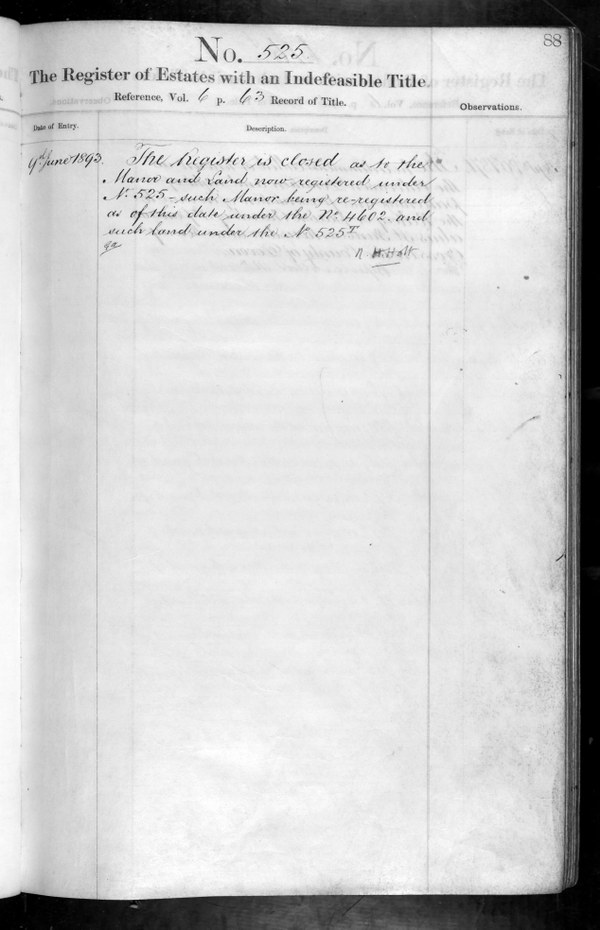 88
No. 525
The Register of Estates with an Indefeasible Title.
Reference, Vol. 6 p. 63 Record of Title.
Observations.
Date of Entry.
Description.
9th June 1893. The Register is closed as to the
Manor and Land now registered under
No. 525 – such Manor being re-registered
as of this date under the No. 4602. and
such land under the No. 525
R. H. Holt